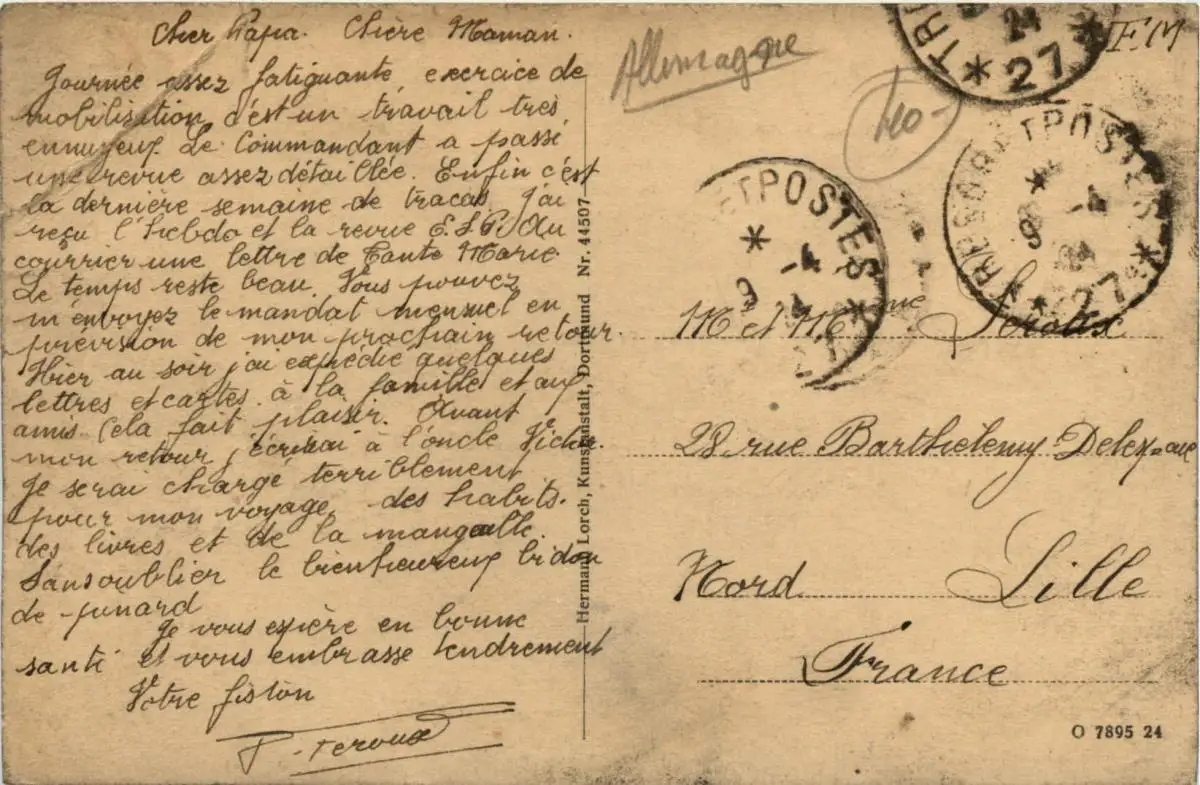 Cher Papa. Chère Maman.
Journée assez fatiguante, exercice de
mobilisation, c'est un travail très
ennuyeux. Le Commandant a passé
une revue assez détaillée. Enfin c'est
la dernière semaine de tracas. J'ai
reçu l'hebdo et la revue E.S.P. Au
courrier une lettre de Tante Marie.
Le temps reste beau. Vous pouvez
m'envoyez le mandat mensuel en
prévision de mon prochain retour.
Hier au soir j'ai expédié quelques
lettres et cartes à la famille et aux
amis. Cela fait plaisir. Avant
mon retour j'écrirai à l'oncle Victor.
Je serai chargé terriblement
pour mon voyage, des habits.
des livres et de la mangeaille.
Sans oublier le bienheureux bidon
de pinard
Je vous espère en bonne
santé et vous embrasse tendrement
Votre fiston
Hermann Lorch, Kunstanstalt, Dortmund Nr. 44507
Allemagne
40-
FM
TRI
24
* 27 *
TRESOR ET POSTES
* 9 -4 24 *
* 27 *
ETPOSTES
* 9 -4
M et Mme
28 rue Barthelemy
Nord Lille
France
O 7895 24